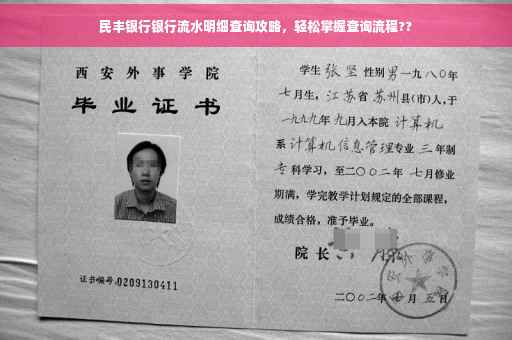 民丰银行银行流水明细查询攻略，轻松掌握查询流程??
西安外事学院
毕业证书
证书编号:0209130411
学生 张坚 性别 男 一九八0年
七月生，江苏省 苏州县(市)人，于
一九九九年 九月入本院 计算机
系 计算机信息管理专业 三 年制
专 科学习，至二〇〇二年 七月修业
期满，学完教学计划规定的全部课程，
成绩合格，准予毕业。
院 长
二〇〇二年 七 月 五 日